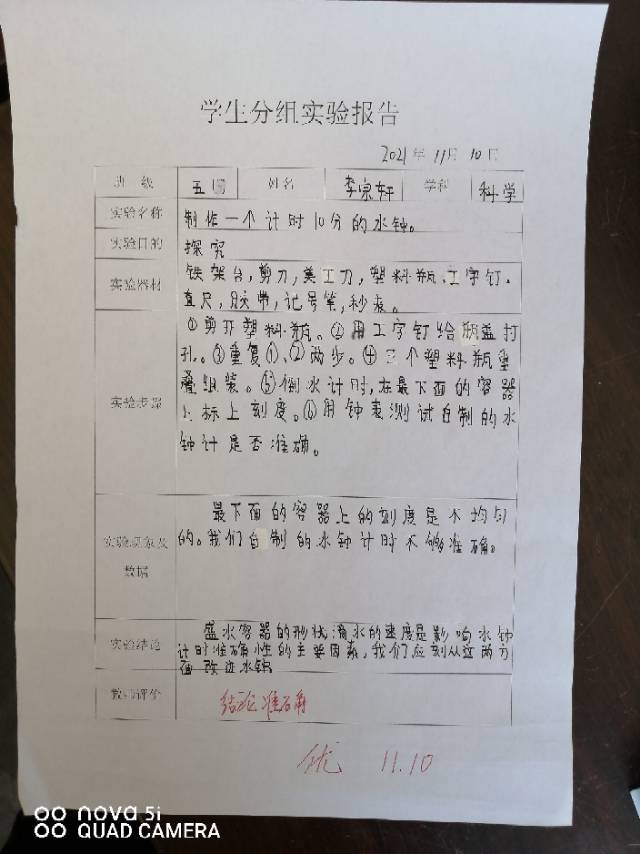 学生分组实验报告
2021年 11月 10日
班 级 五 姓名 李宗轩 学科 科学
实验名称 制作一个计时10分的水钟。
实验目的 探究
实验器材 铁架台,剪刀,美工刀,塑料瓶、工字钉.
直尺,胶带,记号笔,秒表。
实验步骤 ①剪开塑料瓶。②用工字钉给瓶盖打
孔。③重复①、②两步。④三个塑料瓶重
叠组装。⑤倒水计时,在最下面的容器
上标上刻度。⑥用钟表测试自制的水
钟计是否准确。
实验现象及
数据
最下面的容器上的刻度是不均匀
的。我们自制的水钟计时不够准确。
实验结论 盛水容器的形状滴水的速度是影响水钟
计时准确性的主要因素,我们应刻从这两方
面改进水钟
教师评价 结论准确
优 11.10
nova 5i
QUAD CAMERA